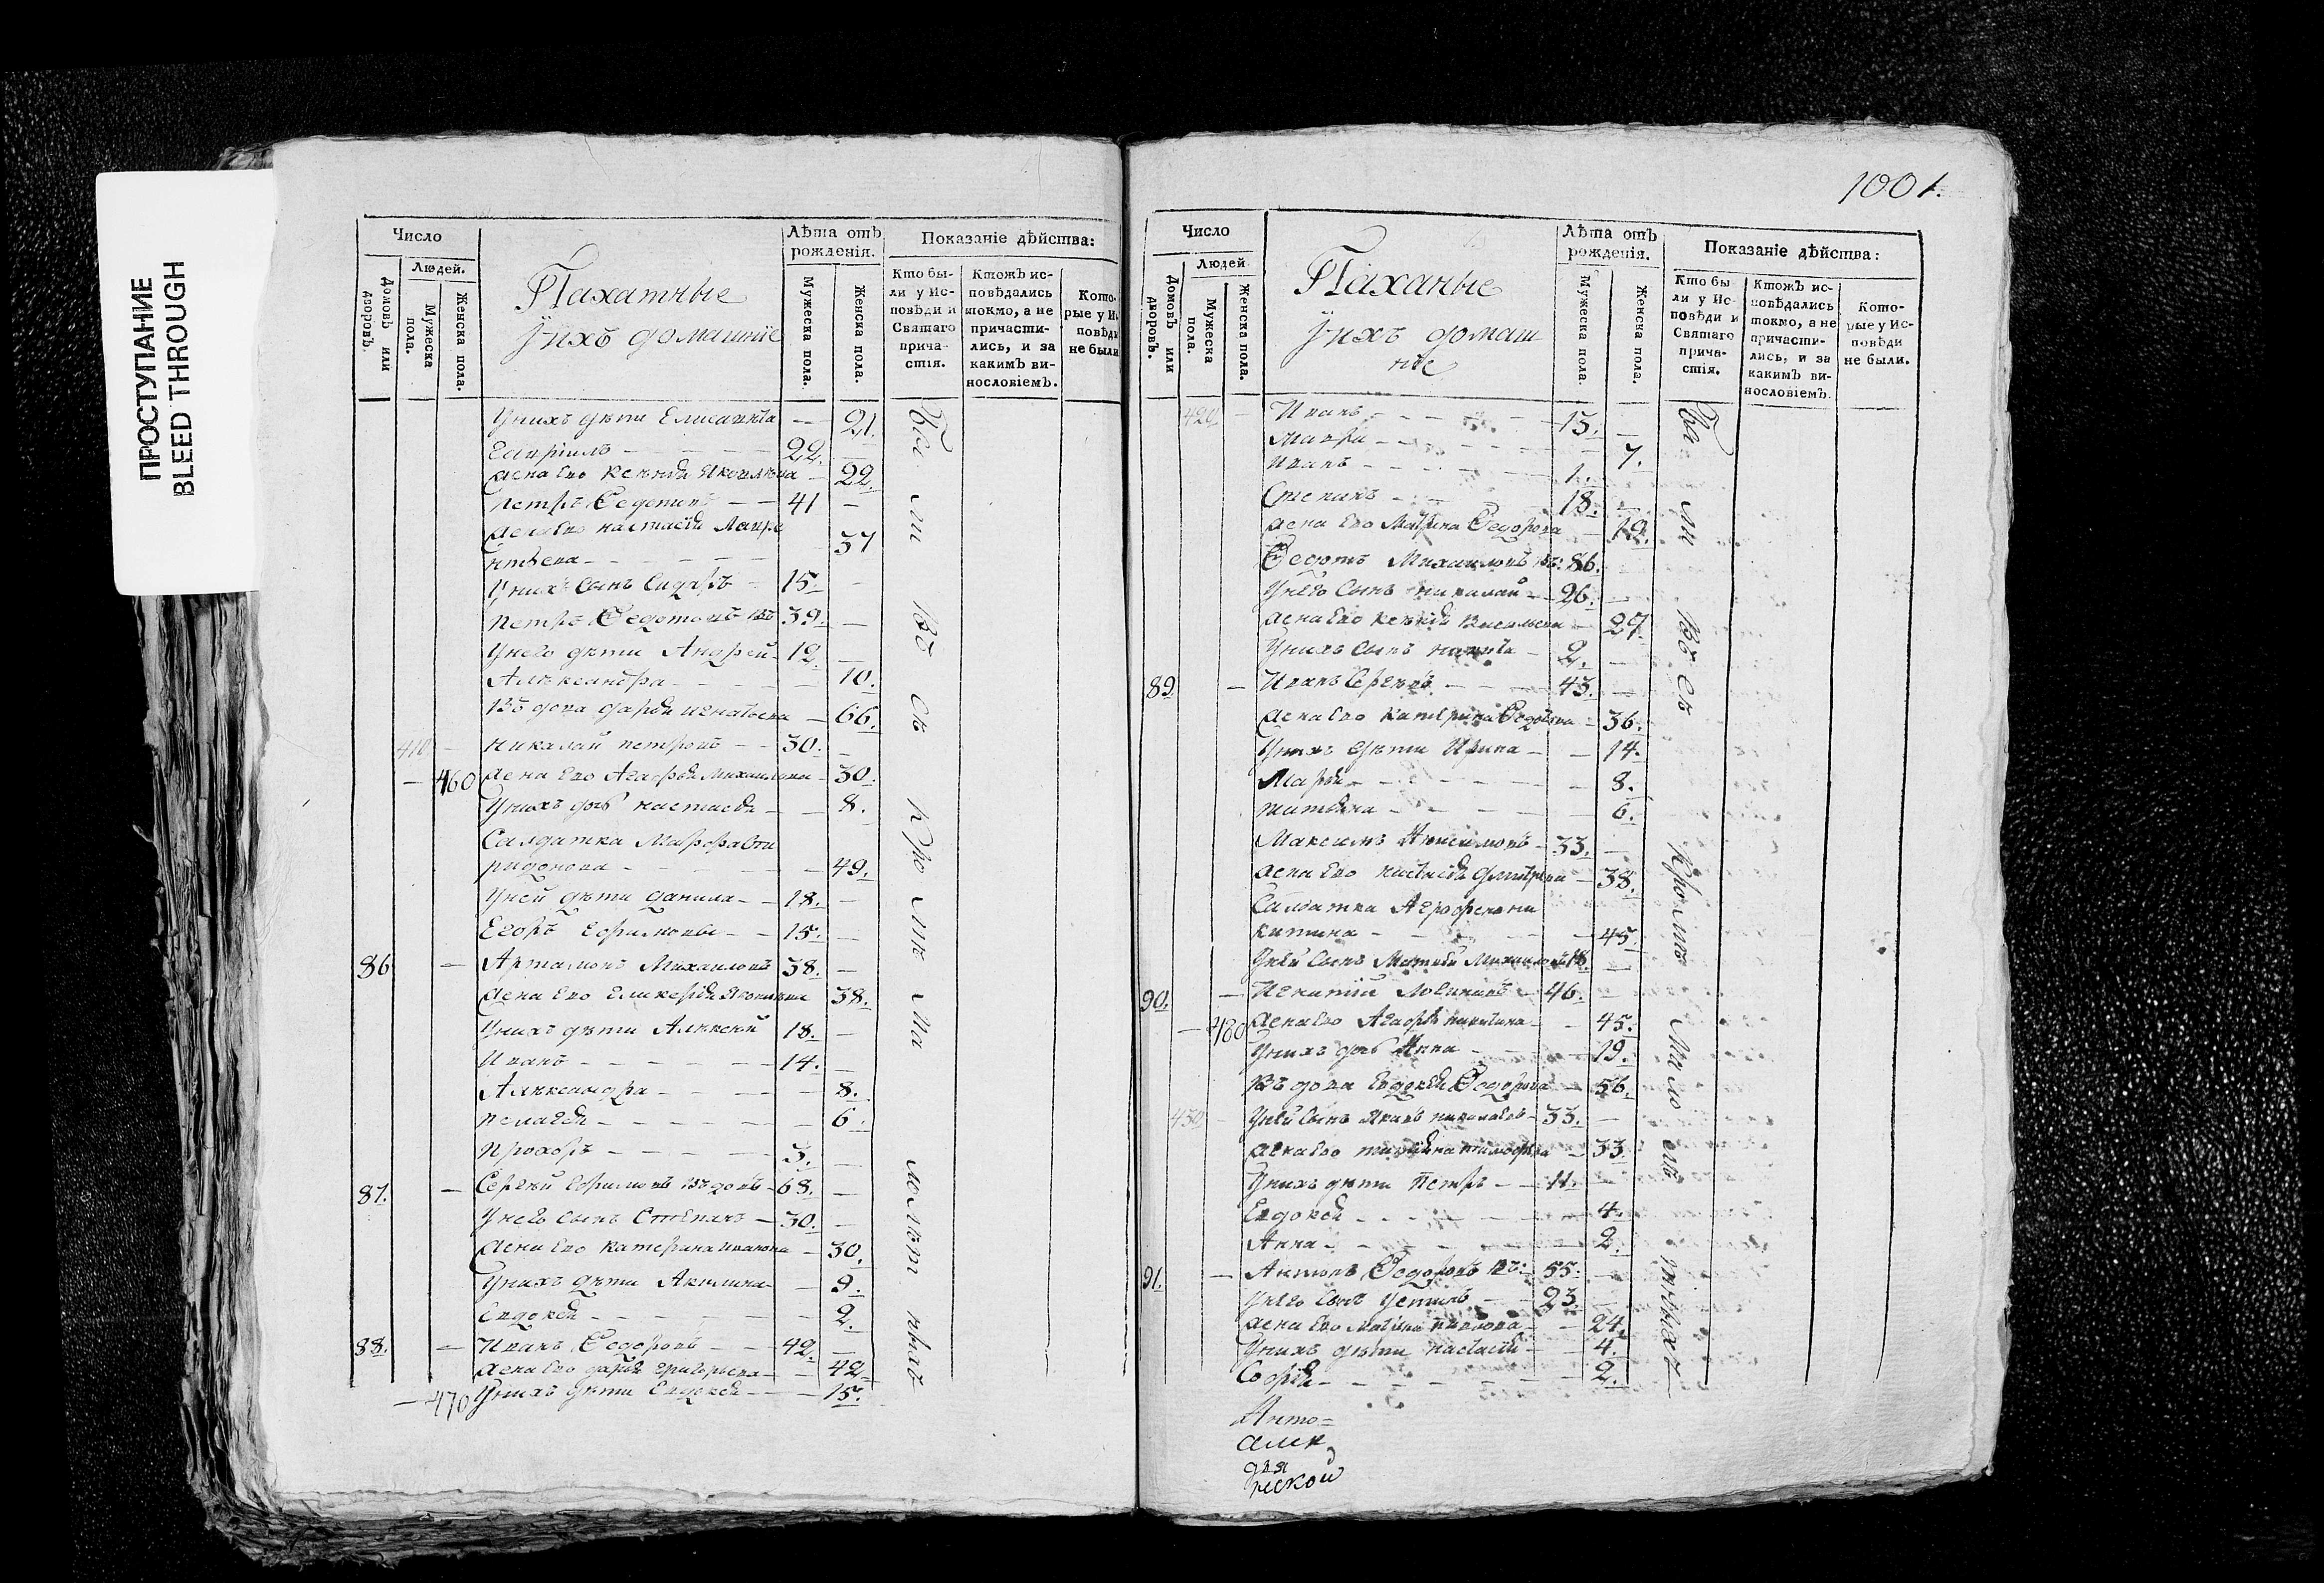 ПРОСТУПАНИЕ
BLEED THROUGH
Число
Людей.
Домовъ или дворовъ.
Мужеска пола.
Женска пола.
Пахатные
ихъ домашние
Лѣта отъ рожденія.
Мужеска пола.
Женска пола.
Показаніе дѣйства:
Кто были у Исповѣди и Святаго причастія.
Ктожъ исповѣдались токмо, а не причастились, и за какимъ винословіемъ.
Которые у Исповѣди не были
Унихъ дѣти Елисавета — 21.
Гаврiилъ — 22.
жена Ево Ксенья Яковлева — 22.
Петръ Федотовъ — 41 —
жена Ево настасья Лавре
нтьева — 37
Унихъ сынъ Сидаръ 15. —
Петръ Федотовъ въ 39. —
Унего дѣти Андрей — 12. —
Александра — 10.
Въдова дарья игнатьева — 66.
410 — николай петровъ — 30. —
— 460 жена Ево Агафья Михаилова — 30.
Унихъ дочь настасья — 8.
Салдатка Марфа Спи
ридонова — 49.
Уней дѣти данила — 18. —
Егоръ Ефимовы — 15. —
86 — Артамонъ Михаиловъ 38. —
жена Ево Гликерья 38.
Унихъ дѣти Алексей 18. —
Иванъ — 14. —
Александра — 8.
пелагея — 6.
прохоръ — 3. —
87. — Сергей Ефимовъ въдовъ — 68. —
Унего сынъ Степанъ — 30. —
жена Ево катерина иванова — 30.
Унихъ дѣти Акилина — 9.
Евдокея — 2.
88. — Иванъ Федоровъ — 42. —
жена Ево дарья григорьева — 42.
— 470 Унихъ дѣти Евдокея — 15.
1001.
Число
Людей
Домовъ или дворовъ.
Мужеска пола.
Женска пола.
Паханые
ихъ домаш
ніе
Лѣта отъ рожденія.
Мужеска пола.
Женска пола.
Показаніе дѣйства:
Кто были у Исповѣди и Святаго причастія.
Ктожъ исповѣдались токмо, а не причастились, и за какимъ винословіемъ.
Которые у Исповѣди не были.
420 — Иванъ — 15. —
Мавра — 7.
Иванъ — 1. —
Степанъ — 18. —
жена Ево Матрена Федорова — 19.
Федотъ Михаиловъ въ: 86. —
Унего сынъ николай — 26. —
жена Ево ксенья Васильева — 27.
Унихъ сынъ никита — 2. —
89. — Иванъ Сергеевъ — 43. —
жена Ево катерина — 36.
Унихъ дѣти Ирина — 14.
Марья — 8.
татьяна — 6.
Максимъ Анисимовъ — 33. —
жена Ево настасья дмитрева — 38.
Салдатка Аграфена ни
китина — 45.
Уней сынъ Матвей Михаиловъ 18. —
90. — Игнатий Логиновъ — 46. —
— 480 жена Ево Агафья никитина — 45.
Унихъ дочь Анна — 19.
Въдова Евдокея Федорова — 56.
430 — Уней сынъ Иванъ николаевъ — 33. —
жена Ево татьяна тимофеева — 33.
Унихъ дѣти Петръ — 11. —
Евдокея — 4.
Анна — 2.
91. — Антонъ Федоровъ въ: 55. —
Унего сынъ Устинъ — 23. —
жена Ево павлова — 24.
Унихъ дѣти настасья — 4.
Софья — 2.